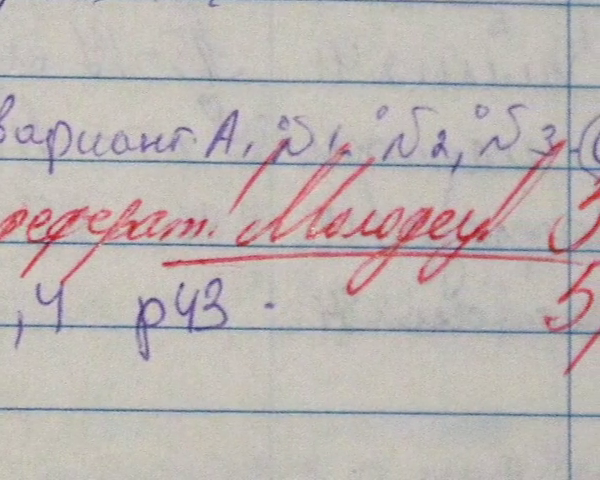 вариант А, №1, №2, №3
реферат. Молодец! 5
,4 р43. 5